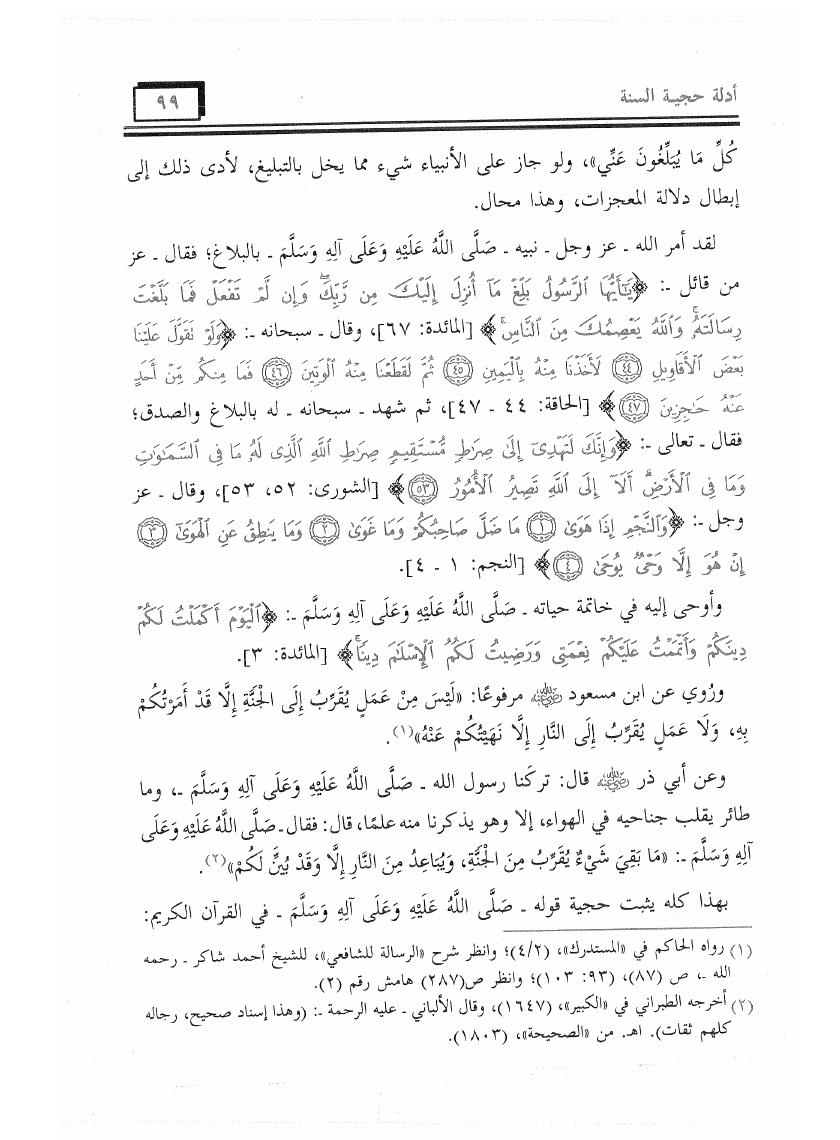 أدلة حجية السنة
٩٩
كُلِّ مَا يُبَلِّغُونَ عَنِّي»، ولو جاز على الأنبياء شيء مما يخل بالتبليغ، لأدى ذلك إلى
إبطال دلالة المعجزات، وهذا محال.
لقد أمر الله ـ عز وجل ـ نبيه ـ صَلَّى اللَّهُ عَلَيْهِ وَعَلَى آلِهِ وَسَلَّمَ ـ بالبلاغ؛ فقال ـ عز
من قائل ـ: ﴿يَٰٓأَيُّهَا ٱلرَّسُولُ بَلِّغْ مَآ أُنزِلَ إِلَيْكَ مِن رَّبِّكَۖ وَإِن لَّمْ تَفْعَلْ فَمَا بَلَّغْتَ
رِسَالَتَهُۥۚ وَٱللَّهُ يَعْصِمُكَ مِنَ ٱلنَّاسِۗ﴾ [المائدة: ٦٧]، وقال ـ سبحانه ـ: ﴿وَلَوْ نَقَوَّلَ عَلَيْنَا
بَعْضَ ٱلْأَقَاوِيلِ ٤٤ لَأَخَذْنَا مِنْهُ بِٱلْيَمِينِ ٤٥ ثُمَّ لَقَطَعْنَا مِنْهُ ٱلْوَتِينَ ٤٦ فَمَا مِنكُم مِّنْ أَحَدٍ
عَنْهُ حَٰجِزِينَ ٤٧﴾ [الحاقة: ٤٤ ـ ٤٧]، ثم شهد ـ سبحانه ـ له بالبلاغ والصدق؛
فقال ـ تعالى ـ: ﴿وَإِنَّكَ لَتَهْدِىٓ إِلَىٰ صِرَٰطٍ مُّسْتَقِيمٍ صِرَٰطِ ٱللَّهِ ٱلَّذِى لَهُۥ مَا فِى ٱلسَّمَٰوَٰتِ
وَمَا فِى ٱلْأَرْضِۗ أَلَآ إِلَى ٱللَّهِ تَصِيرُ ٱلْأُمُورُ ٥٣﴾ [الشورى: ٥٢، ٥٣]، وقال ـ عز
وجل ـ: ﴿وَٱلنَّجْمِ إِذَا هَوَىٰ ١ مَا ضَلَّ صَاحِبُكُمْ وَمَا غَوَىٰ ٢ وَمَا يَنطِقُ عَنِ ٱلْهَوَىٰٓ ٣
إِنْ هُوَ إِلَّا وَحْىٌ يُوحَىٰ ٤﴾ [النجم: ١ ـ ٤].
وأوحى إليه في خاتمة حياته ـ صَلَّى اللَّهُ عَلَيْهِ وَعَلَى آلِهِ وَسَلَّمَ ـ: ﴿ٱلْيَوْمَ أَكْمَلْتُ لَكُمْ
دِينَكُمْ وَأَتْمَمْتُ عَلَيْكُمْ نِعْمَتِى وَرَضِيتُ لَكُمُ ٱلْإِسْلَٰمَ دِينًاۚ﴾ [المائدة: ٣].
ورُوي عن ابن مسعود رضي الله عنه مرفوعًا: «لَيْسَ مِنْ عَمَلٍ يُقَرِّبُ إِلَى الْجَنَّةِ إِلَّا قَدْ أَمَرْتُكُمْ
بِهِ، وَلَا عَمَلٍ يُقَرِّبُ إِلَى النَّارِ إِلَّا نَهَيْتُكُمْ عَنْهُ»(١).
وعن أبي ذر رضي الله عنه قال: تركَنا رسول الله ـ صَلَّى اللَّهُ عَلَيْهِ وَعَلَى آلِهِ وَسَلَّمَ ـ، وما
طائر يقلب جناحيه في الهواء، إلا وهو يذكرنا منه علمًا، قال: فقال ـ صَلَّى اللَّهُ عَلَيْهِ وَعَلَى
آلِهِ وَسَلَّمَ ـ: «مَا بَقِيَ شَيْءٌ يُقَرِّبُ مِنَ الْجَنَّةِ، وَيُبَاعِدُ مِنَ النَّارِ إِلَّا وَقَدْ بُيِّنَ لَكُمْ»(٢).
بهذا كله يثبت حجية قوله ـ صَلَّى اللَّهُ عَلَيْهِ وَعَلَى آلِهِ وَسَلَّمَ ـ في القرآن الكريم:
(١) رواه الحاكم في «المستدرك»، (٤/٢)؛ وانظر شرح «الرسالة للشافعي»، للشيخ أحمد شاكر ـ رحمه
الله ـ، ص (٨٧)، (٩٣: ١٠٣)؛ وانظر ص(٢٨٧) هامش رقم (٢).
(٢) أخرجه الطبراني في «الكبير»، (١٦٤٧)، وقال الألباني ـ عليه الرحمة ـ: (وهذا إسناد صحيح، رجاله
كلهم ثقات). اهـ. من «الصحيحة»، (١٨٠٣).